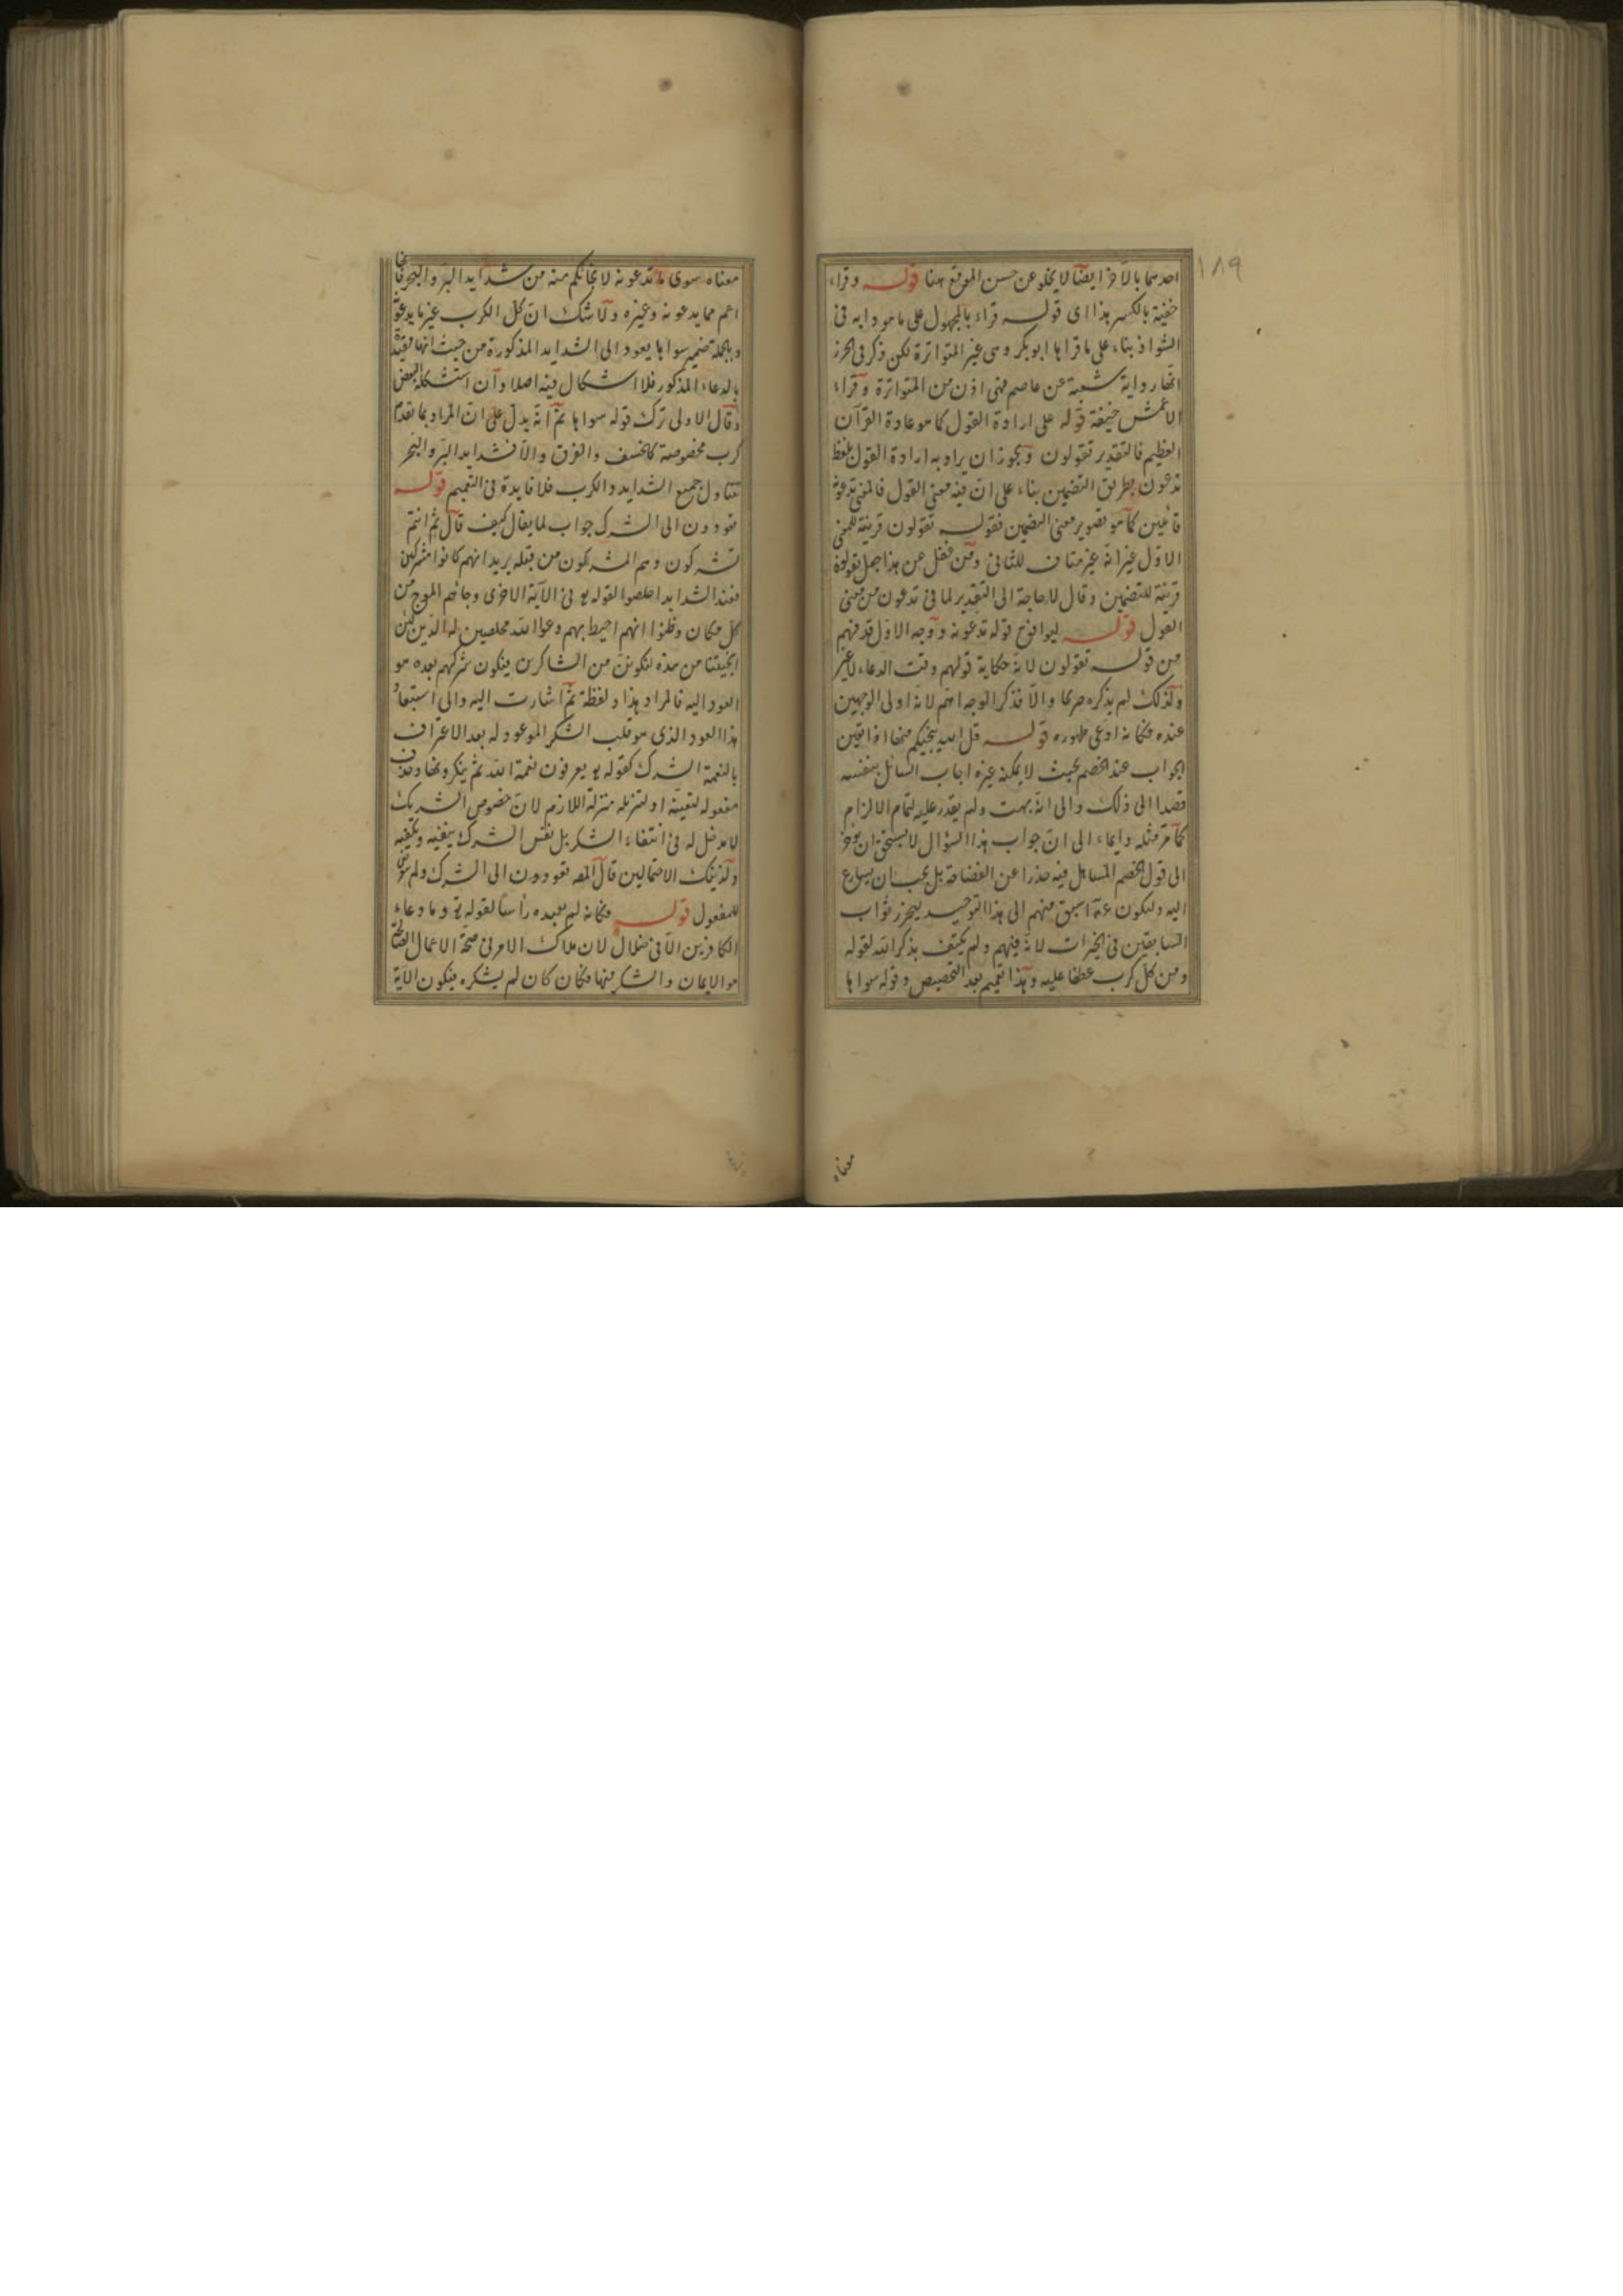 ١٨٩
احدهما بالآخر ايضا لا يخلو عن حسن الموقع هنا قوله وقراء
خفية بالكسر هذا اى قوله قراء بالمجهول على ما هو دابه فى
الشواذ بناء على ما قراها ابو بكر وهى غير المتواترة لكن ذكر فى الحرز
انها رواية شعبة عن عاصم فهى اذن من المتواترة وقراء
الاعمش خيفة قوله على ارادة القول كما هو عادة القرآن
العظيم فالتقدير تقولون ويجوز ان يراد به ارادة القول بلفظ
تدعون بطريق التضمين بناء على ان فيه معنى القول فالمعنى تدعونه
قائلين كما هو تصوير معنى التضمين فقوله تقولون قرينة للمعنى
الاول غير انه غير مناف للثانى ومن غفل عن هذا جعل تقولون
قرينة للتضمين وقال لا حاجة الى التقدير لما فى تدعون من معنى
القول قوله ليوافق قوله تدعونه ووجه الاول قد فهم
من قوله تقولون لانه حكاية قولهم وقت الدعاء لا غير
ولذلك لم يذكره صريحا والا فذكر الوجه اهم لانه اولى الوجهين
عنده فكانه ادعى ظهوره قوله قل الله ينجيكم منها اذا تعين
الجواب عند الخصم بحيث لا يمكنه غيره اجاب السائل بنفسه
قصدا الى ذلك والى انه بهت ولم يقدر عليه لتمام الالزام
كما مر مثله وايماء الى ان جواب هذا السؤال لا يستحق ان يؤخر
الى قول الخصم المتساهل فيه حذرا عن الفضاحة بل يجب ان يسارع
اليه وليكون عم اسبق منهم الى هذا التوحيد ليحرز ثواب
السابقين فى الخيرات لانه فيهم ولم يكتف بذكر الله لقوله
ومن كل كرب عطفا عليه وهذا تعميم بعد التخصيص وقوله سواها
معناه
معناه سوى ما تدعونه لانجائكم منه من شدايد البر والبحر فانها
اعم مما يدعونه وغيره ولا شك ان كل الكرب غير ما يدعونه
وبالجملة ضمير سواها يعود الى الشدايد المذكورة من حيث انها مقيدة
بالدعاء المذكور فلا اشكال فيه اصلا وان استشكله البعض
وقال الاولى ترك قوله سواها ثم انه يدل على ان المراد بما تقدم
كرب مخصوصة كالخسف والغرق والا فشدايد البر والبحر
تتناول جميع الشدايد والكرب فلا فايدة فى التعميم قوله
تعودون الى الشرك جواب لما يقال كيف قال ثم انتم
تشركون وهم المشركون من قبله يريد انهم كانوا مشركين
فعند الشدايد اخلصوا لقوله تع فى الآية الاخرى وجائهم الموج من
كل مكان وظنوا انهم احيط بهم دعوا الله مخلصين له الدين لئن
انجيتنا من هذه لنكونن من الشاكرين فيكون شركهم بعده هو
العود اليه فالمراد هذا ولفظة ثم اشارت اليه والى استبعاد
هذا العود الذى هو قلب الشكر الموعود له بعد الاعتراف
بالنعمة الشرك كقوله تع يعرفون نعمة الله ثم ينكرونها وحذف
مفعوله لتعينه او لتنزيله منزلة اللازم لان خصوص الشريك
لا مدخل له فى انتفاء الشكر بل نفس الشرك ينفيه ويكفيه
ولذينك الاحتمالين قال المص تعودون الى الشرك ولم يتعرض
للمفعول قوله فكانه لم يعبده رأسا لقوله تع وما دعاء
الكافرين الا فى ضلال لان ملاك الامر فى صحة الاعمال الصالحة
هو الايمان والشكر منها فكان كان لم يشكره فيكون الآية